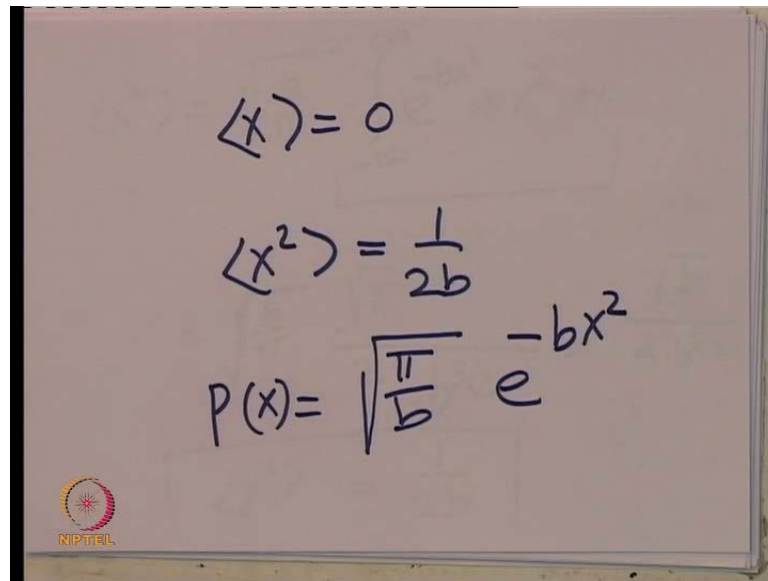 ⟨x⟩ = 0
⟨x²⟩ = 1/2b
P(x) = √(π/b) e^(-bx²)
NPTEL